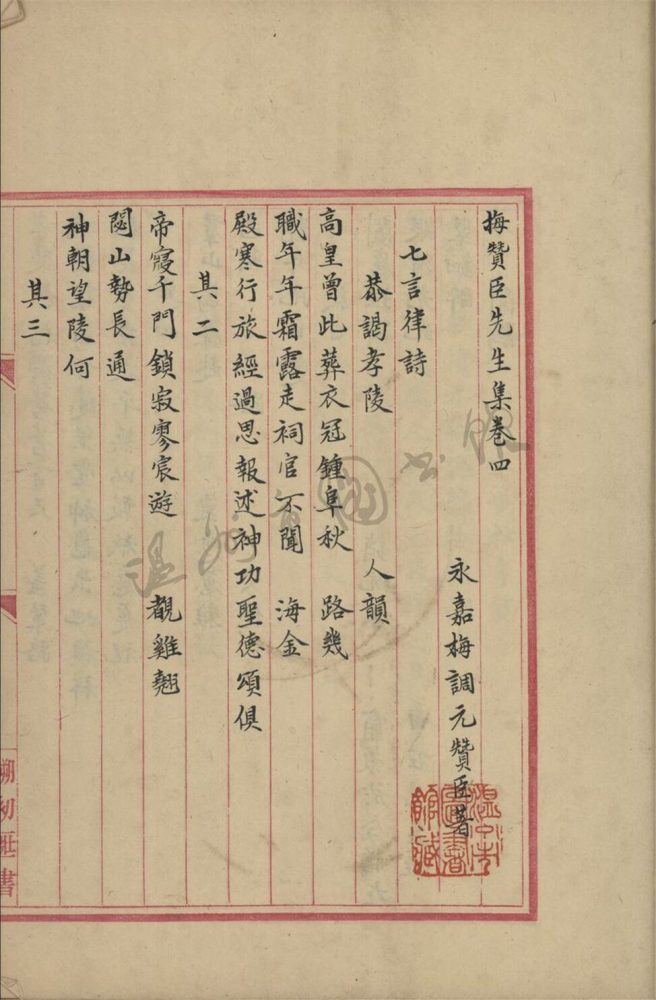 梅贊臣先生集卷四
永嘉梅調元贊臣著
七言律詩
恭謁孝陵　人韻
高皇曾此葬衣冠鍾阜秋　路幾
職年年霜露走祠官不聞　海金
殿寒行旅經過思報述神功聖德頌俱
其二
帝寢千門鎖寂寥宸遊　覩雞翹
閟山勢長通
神朝望陵何
其三
溫州市圖書館藏
朔初
書